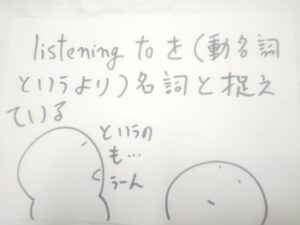 listening to を(動名詞
というより)名詞と捉え
ている
というの
も…
うーん